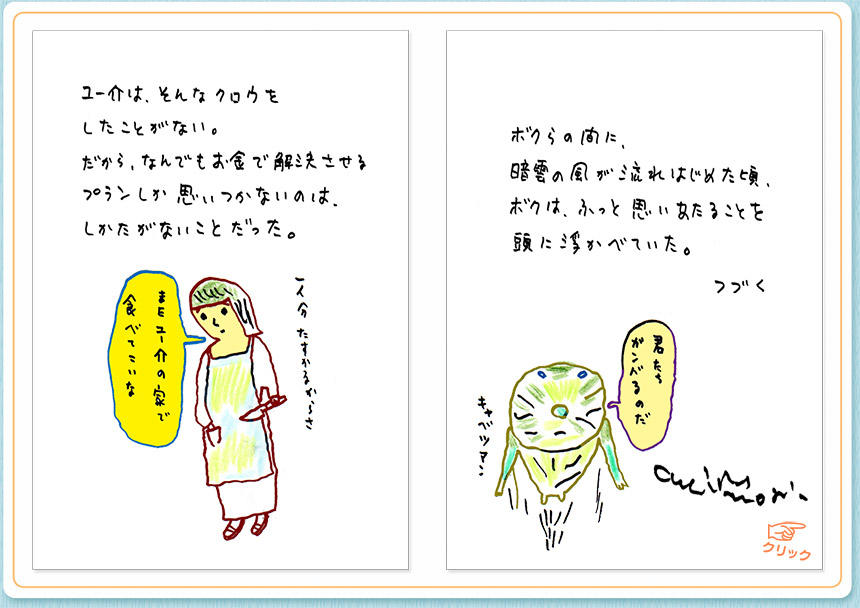 ユー介は、そんなクロウを
したことがない。
だから、なんでもお金で解決させる
プランしか思いつかないのは、
しかたがないことだった。
またユー介の家で
食べてこいな
一人分たすかるからさ
ボクらの間に、
暗雲の風が流れはじめた頃、
ボクは、ふっと思いあたることを
頭に浮かべていた。
つづく
君たち
がンべるのだ
キャベツマン
クリック